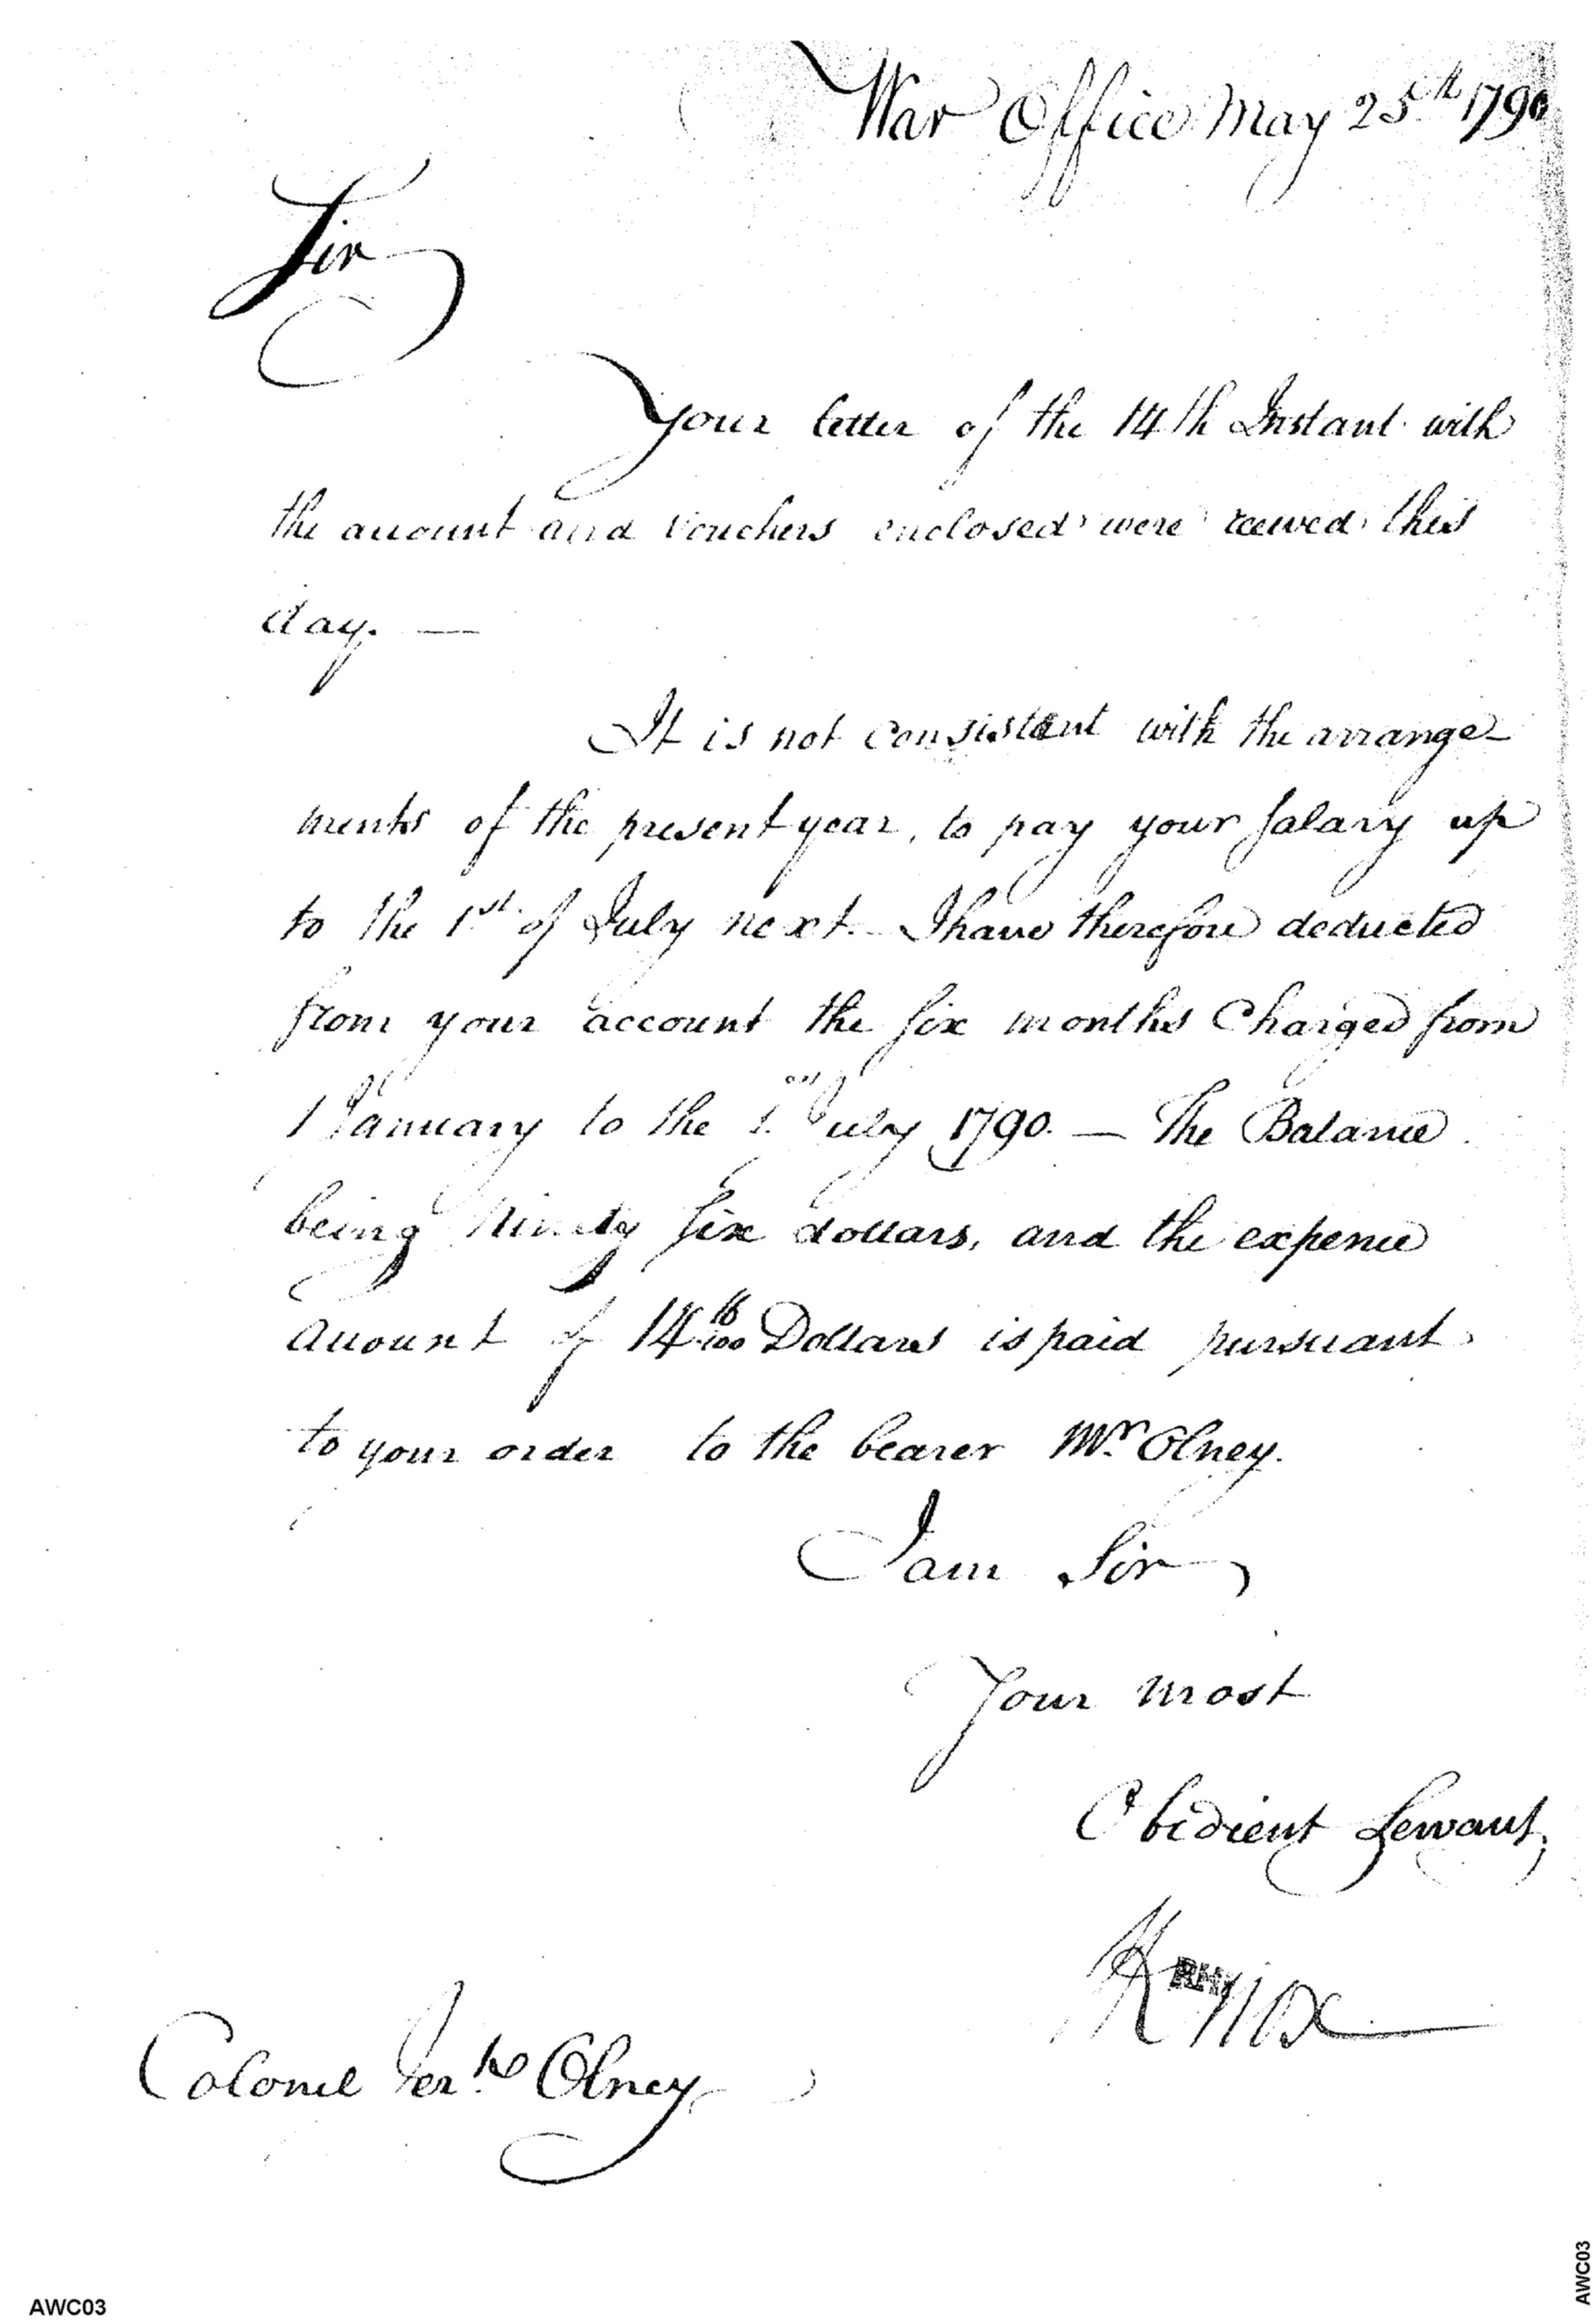 War Office May 25th 1790
Sir
Your letter of the 14th Instant with
the account and vouchers enclosed were received this
day. —
It is not consistent with the arrange-
ments of the present year, to pay your Salary up
to the 1st of July next. I have therefore deducted
from your account the Six months Charged from
1 January to the 1st July 1790. — The Balance
being Ninety Six dollars, and the expence
account of 14 16/100 Dollars is paid pursuant
to your order to the bearer Mr. Olney.
I am Sir,
Your most
Obedient Servant,
HKnox
Colonel Jerh Olney
AWC03
AWC03